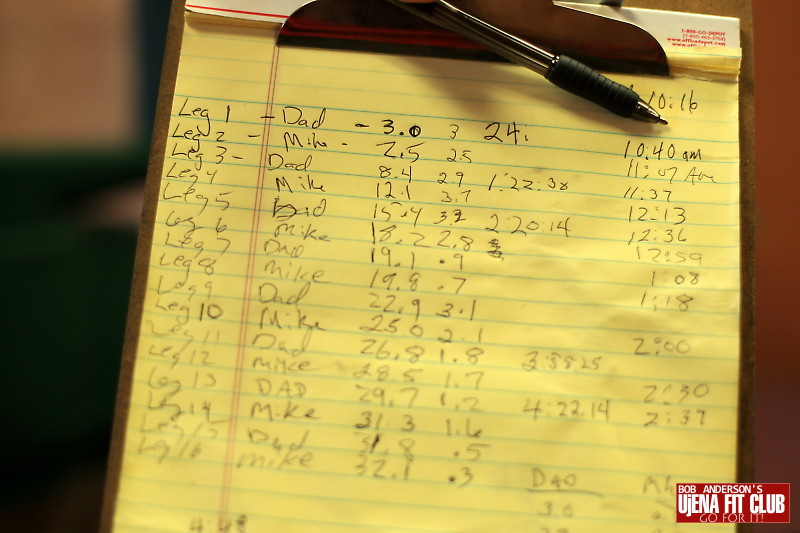 1-800-GO-DEPOT
(1-800-463-3768)
www.officedepot.com
10:16
Leg 1 - Dad - 3.0 3 24:
Leg 2 - Mike - 2.5 25 10:40 am
Leg 3 - Dad 8.4 2.9 1:22:38 11:07 Am
Leg 4 Mike 12.1 3.7 11:37
Leg 5 Dad 15.4 3.3 2:20:14 12:13
Leg 6 Mike 18.2 2.8 12:36
Leg 7 Dad 19.1 .9 12:59
Leg 8 Mike 19.8 .7 1:08
Leg 9 Dad 22.9 3.1 1:18
Leg 10 Mike 25.0 2.1
Leg 11 Dad 26.8 1.8 3:38:25 2:00
Leg 12 Mike 28.5 1.7
Leg 13 DAD 29.7 1.2 4:22:14 2:30
Leg 14 Mike 31.3 1.6 2:39
Leg 15 Dad 31.8 .5
Leg 16 Mike 32.1 .3
Dad
3.0
4:48
BOB ANDERSON'S
UjENA FIT CLUB
GO FOR IT!